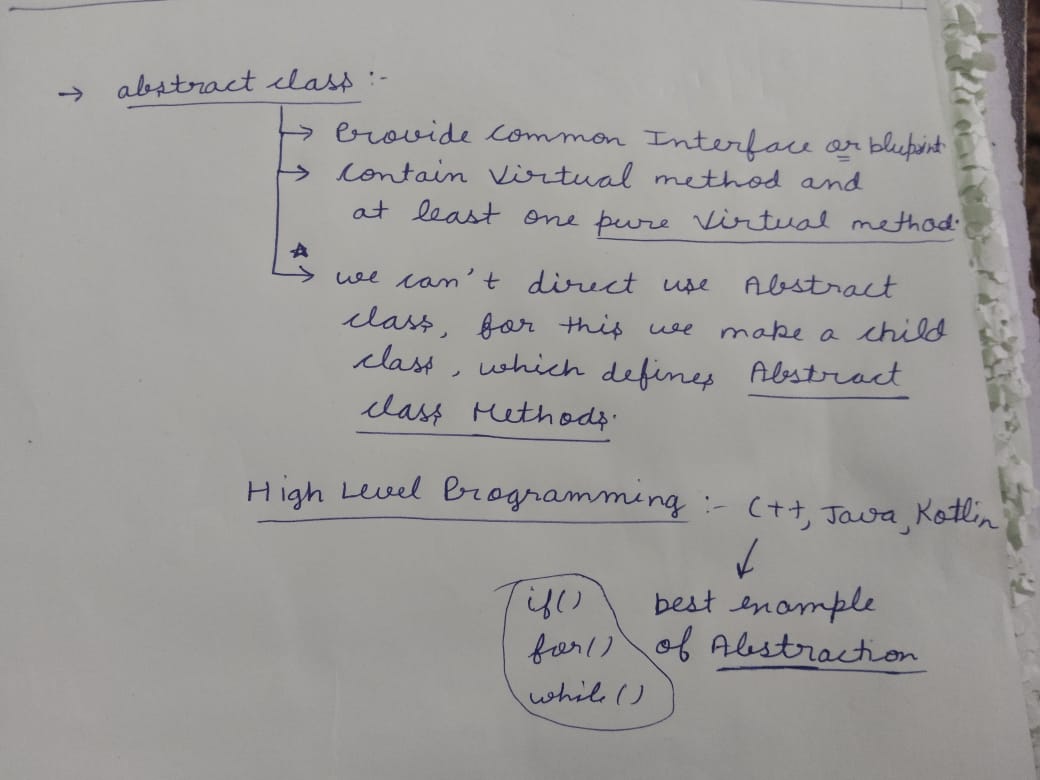 → abstract class :-
→ Provide common Interface or bluprint
→ contain Virtual method and
at least one pure Virtual method.
☆
→ we can't direct use Abstract
class, for this we make a child
class, which defines Abstract
class Methods.
High Level Programming :- C++, Java, Kotlin
↓
if() best example
for() of Abstraction
while()